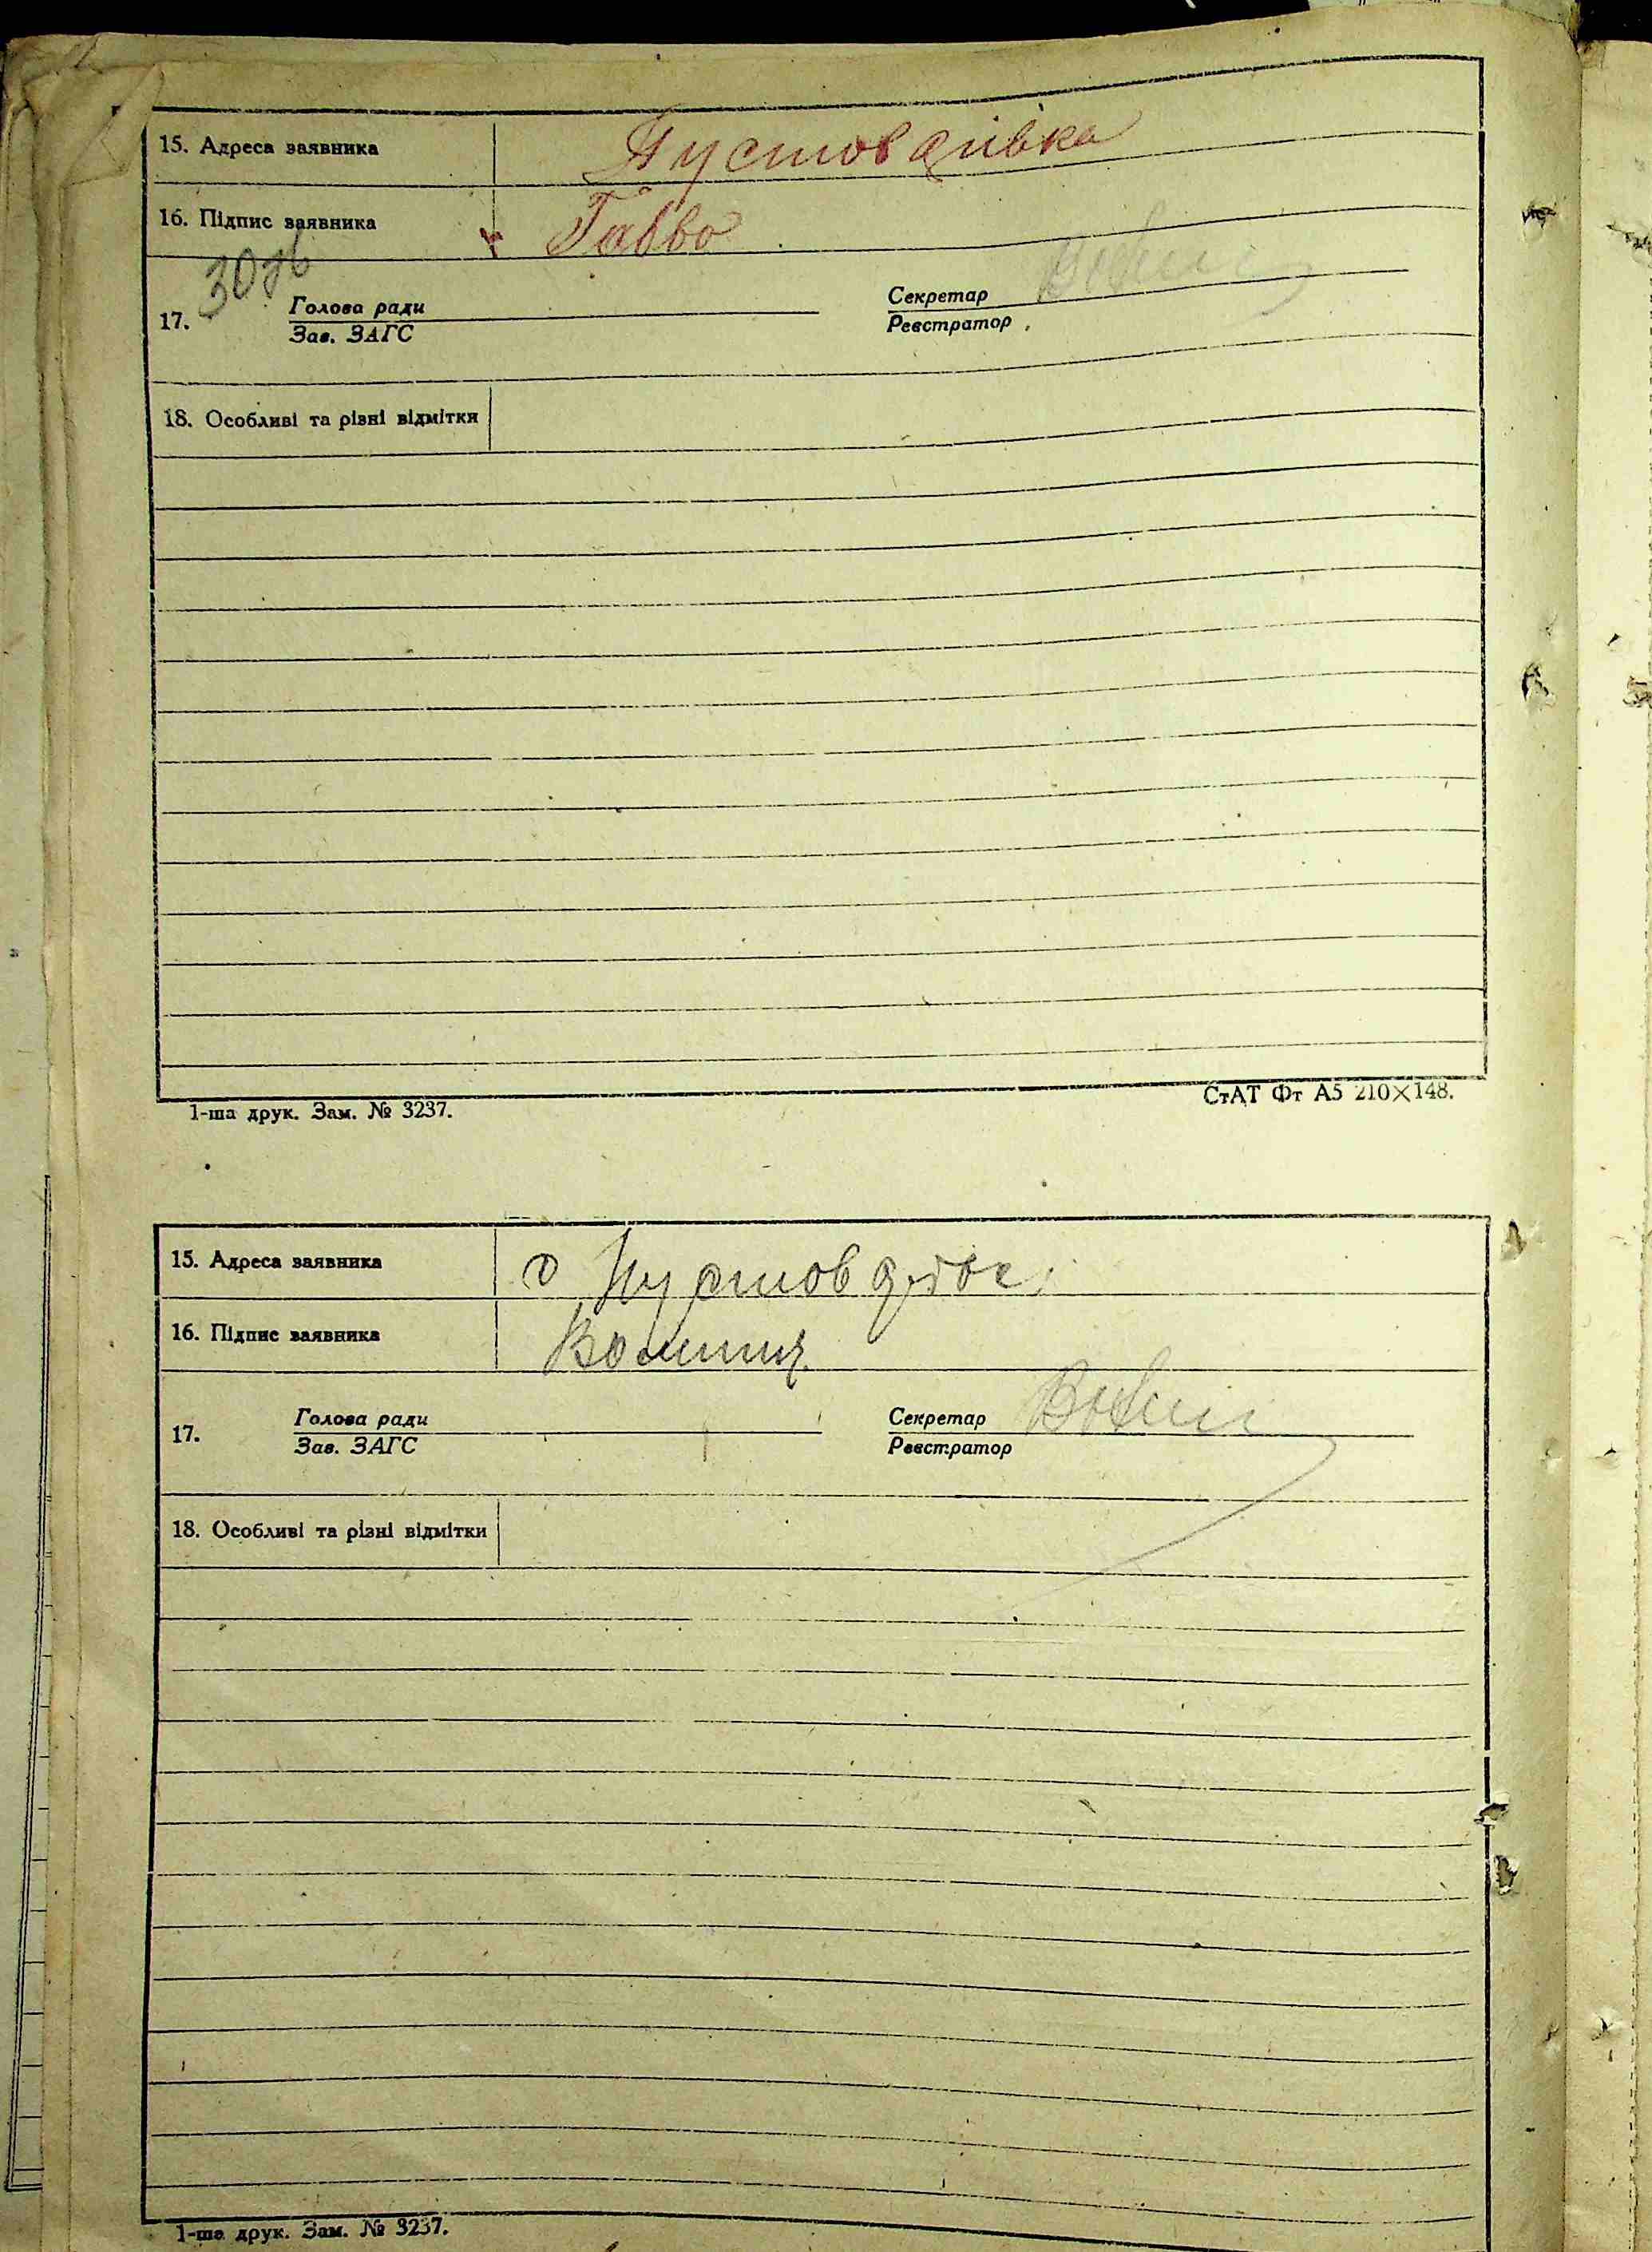 15. Адреса заявника Пустовдівка
16. Підпис заявника Габво
17. Голова ради Секретар
Зав. ЗАГС Реєстратор
18. Особливі та різні відмітки
1-ша друк. Зам. № 3237. СтАТ Фт А5 210×148.
15. Адреса заявника с
16. Підпис заявника
17. Голова ради Секретар
Зав. ЗАГС Реєстратор
18. Особливі та різні відмітки
1-ша друк. Зам. № 3237.